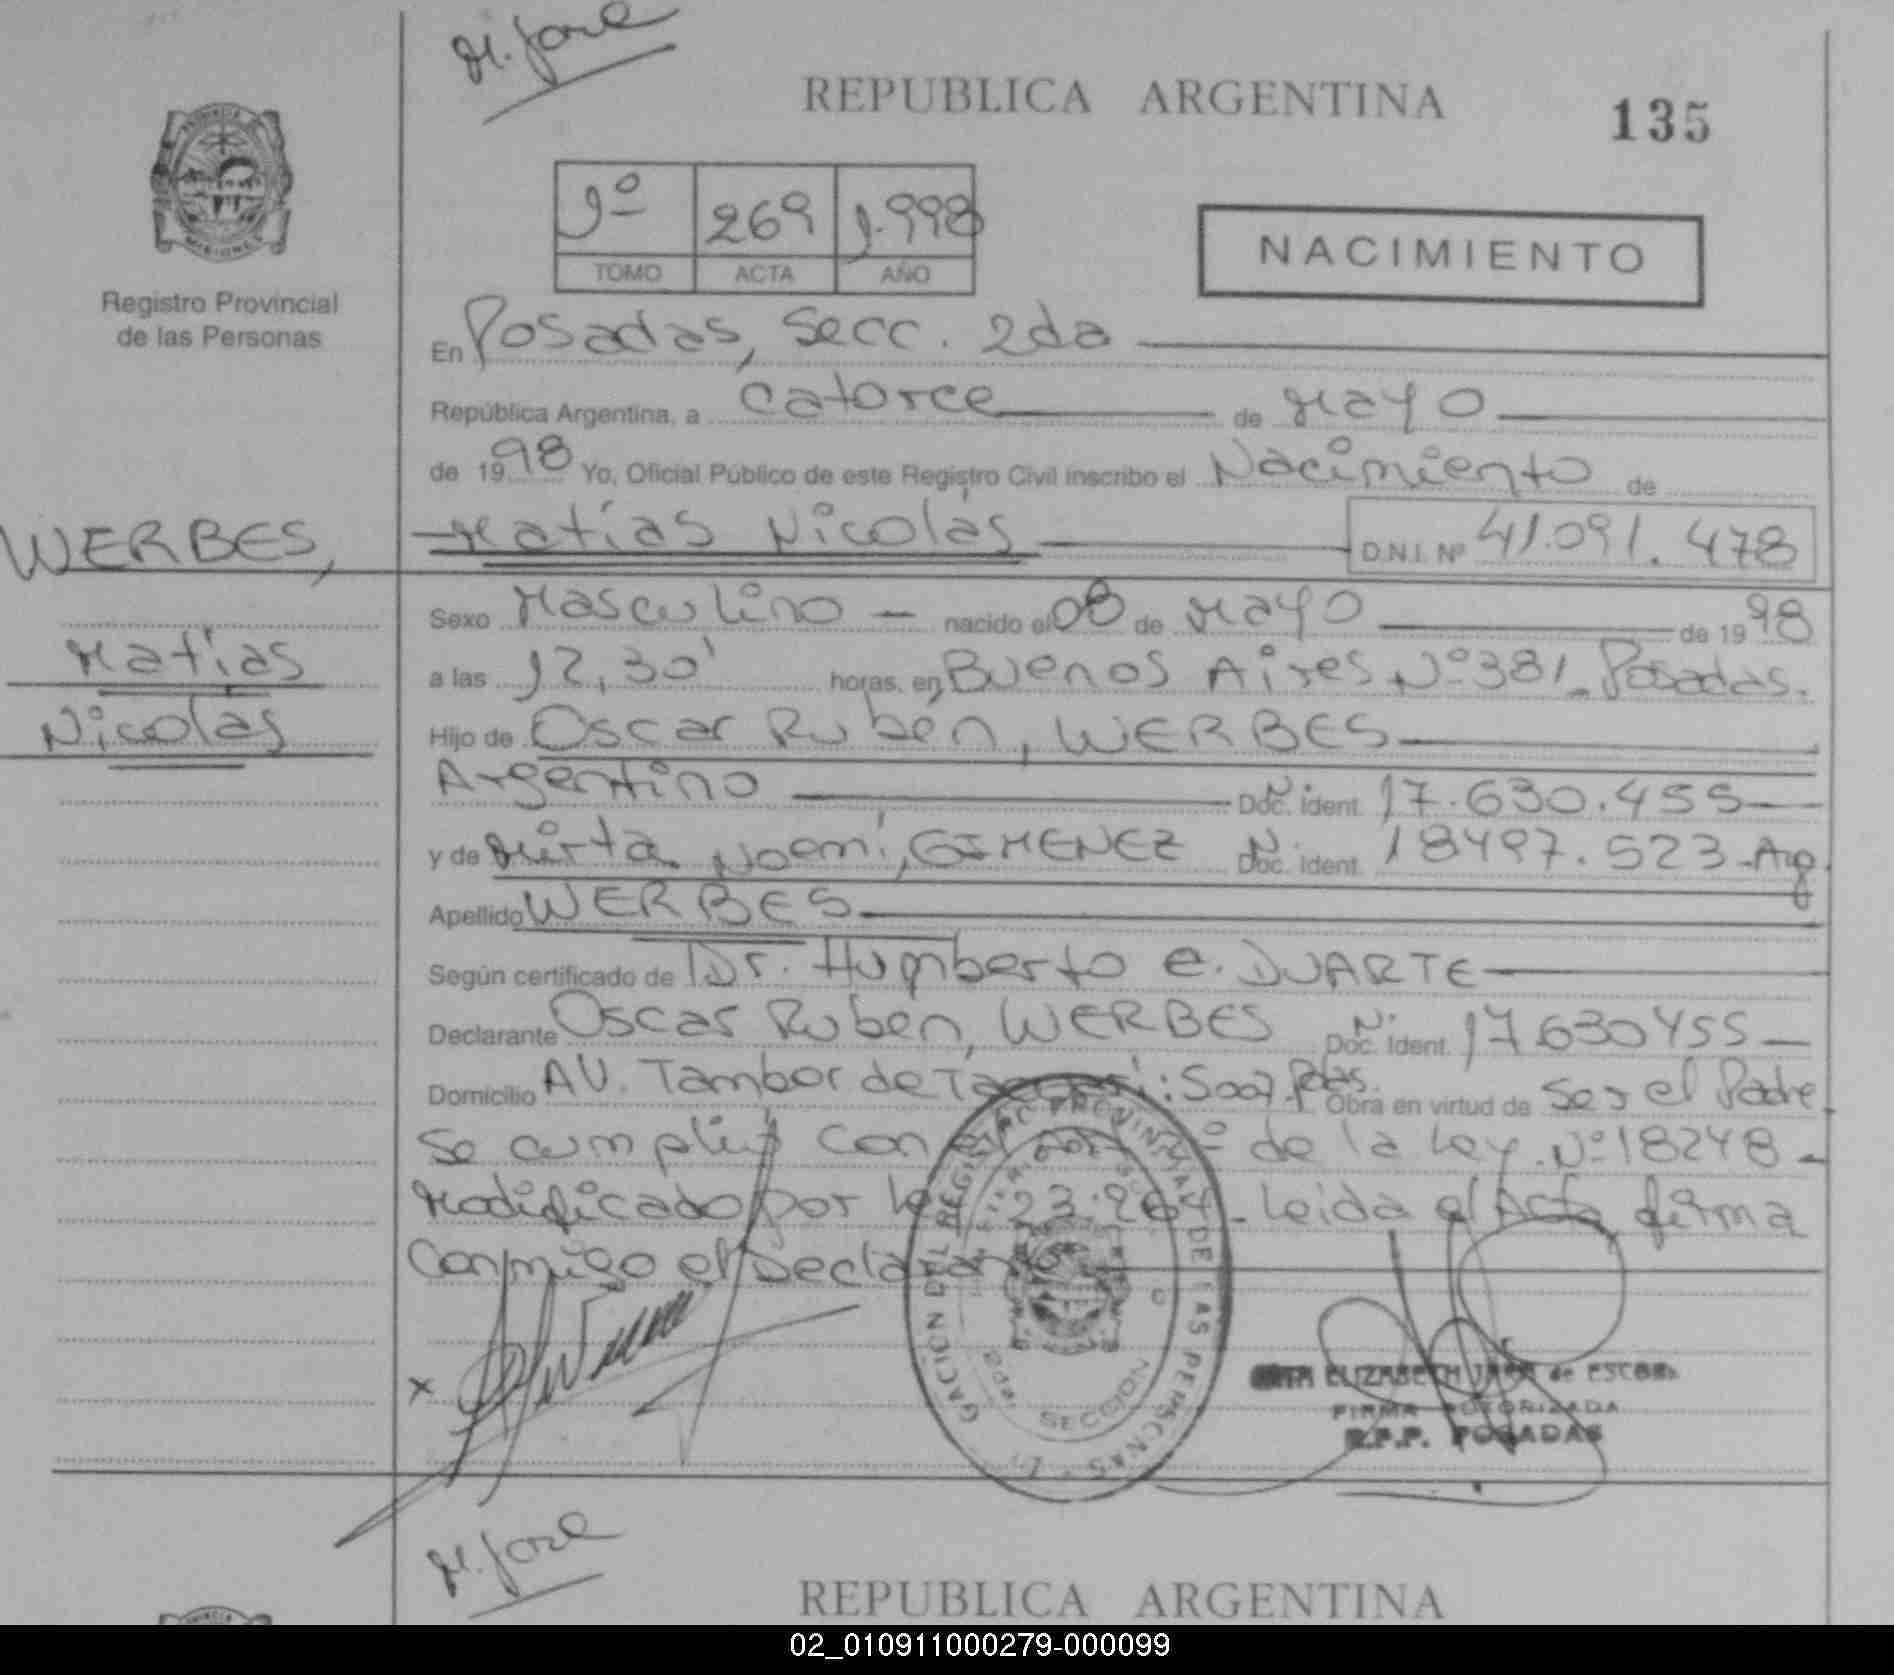 M. José
REPUBLICA ARGENTINA
135
PROVINCIA DE
MISIONES
Registro Provincial
de las Personas
1º 269 1.998
TOMO ACTA AÑO
NACIMIENTO
En Posadas, Secc. 2da
República Argentina, a catorce de Mayo
de 1998 Yo, Oficial Público de este Registro Civil inscribo el Nacimiento de
WERBES, Matías Nicolás D.N.I. Nº 41.091.478
Matías
Nicolás
Sexo Masculino - nacido el 08 de Mayo de 1998
a las 12,30' horas, en Buenos Aires Nº 381_ Posadas.
Hijo de Oscar Ruben, WERBES
Argentino N. Doc. Ident. 17.630.455
y de Mirta Noemí, GIMENEZ N. Doc. Ident. 18497.523-Arg.
Apellido WERBES
Según certificado de Dr. Humberto e. DUARTE
Declarante Oscar Ruben, WERBES N. Doc. Ident. 17630455
Domicilio AV. Tambor de Pdas. Obra en virtud de ser el Padre
Se cumplió con el de la Ley. Nº 18248-
Modificado por 23.264_ Leida el Acta firma
conmigo el Declarante
SECCION
ELIZABETH JARA de ESCOB
FIRMA AUTORIZADA
R.P.P. POSADAS
M. José
REPUBLICA ARGENTINA
02_010911000279-000099